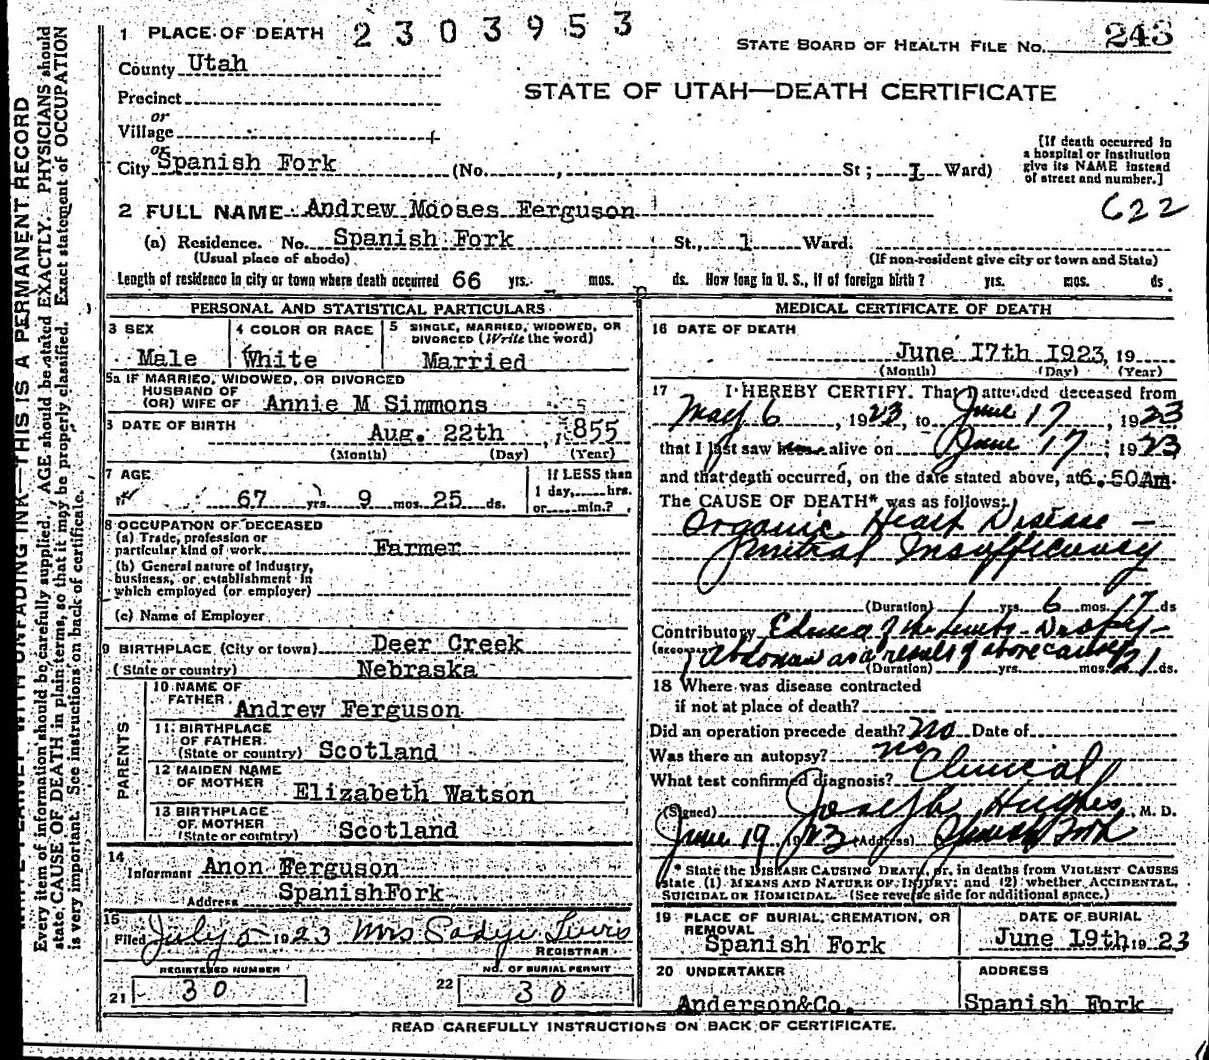 1 PLACE OF DEATH 2303953
STATE BOARD OF HEALTH FILE No. 243
County Utah
STATE OF UTAH—DEATH CERTIFICATE
Precinct
or
Village
or
City Spanish Fork (No. , St ; I Ward)
[If death occurred in
a hospital or Institution
give its NAME instead
of street and number.]
622
2 FULL NAME Andrew Mooses Ferguson
(a) Residence. No. Spanish Fork St., 1 Ward.
(Usual place of abode) (If non-resident give city or town and State)
Length of residence in city or town where death occurred 66 yrs. mos. ds. How long in U. S., if of foreign birth? yrs. mos. ds.
PERSONAL AND STATISTICAL PARTICULARS
3 SEX
Male
4 COLOR OR RACE
White
5 SINGLE, MARRIED, WIDOWED, OR
DIVORCED (Write the word)
Married
5a IF MARRIED, WIDOWED, OR DIVORCED
HUSBAND OF
(OR) WIFE OF Annie M Simmons
6 DATE OF BIRTH
Aug. 22th , 1855
(Month) (Day) (Year)
7 AGE
67 yrs 9 mos 25 ds.
If LESS than
1 day, hrs.
or min.?
8 OCCUPATION OF DECEASED
(a) Trade, profession or
particular kind of work Farmer
(b) General nature of Industry,
business, or establishment in
which employed (or employer)
(c) Name of Employer
9 BIRTHPLACE (City or town) Deer Creek
(State or country) Nebraska
PARENTS
10 NAME OF
FATHER Andrew Ferguson
11 BIRTHPLACE
OF FATHER
(State or country) Scotland
12 MAIDEN NAME
OF MOTHER Elizabeth Watson
13 BIRTHPLACE
OF MOTHER
(State or country) Scotland
14
Informant Anon Ferguson
Address SpanishFork
15
Filed July 5 1923 Mrs
REGISTRAR
REGISTERED NUMBER
21 30
NO. OF BURIAL PERMIT
22 30
MEDICAL CERTIFICATE OF DEATH
16 DATE OF DEATH
June 17th 1923, 19
(Month) (Day) (Year)
17 I HEREBY CERTIFY. That I attended deceased from
May 6, 1923, to June 17, 1923
that I last saw alive on June 17, 1923
and that death occurred, on the date stated above, at 6.50 Am.
The CAUSE OF DEATH* was as follows:
Organic Heart Disease —
Mitral Insufficiency
(Duration) 1 yrs 6 mos 17 ds
Contributory Edema of the Limbs - Dropsy -
Abdomen as a result of above cause
(Duration) yrs. mos. 21 ds.
18 Where was disease contracted
if not at place of death?
Did an operation precede death? no Date of
Was there an autopsy? no
What test confirmed diagnosis? Clinical
(Signed) Joseph Hughes, M. D.
June 19 1923 (Address) Spanish Fork
* State the DISEASE CAUSING DEATH, or, in deaths from VIOLENT CAUSES
state (1) MEANS AND NATURE OF INJURY: and (2) whether ACCIDENTAL,
SUICIDAL OR HOMICIDAL. (See reverse side for additional space.)
19 PLACE OF BURIAL, CREMATION, OR
REMOVAL
Spanish Fork
DATE OF BURIAL
June 19th 1923
20 UNDERTAKER
Anderson&Co.
ADDRESS
Spanish Fork
READ CAREFULLY INSTRUCTIONS ON BACK OF CERTIFICATE.
WITH UNFADING INK—THIS IS A PERMANENT RECORD
Every item of information should be carefully supplied. AGE should be stated EXACTLY. PHYSICIANS should
state CAUSE OF DEATH in plain terms, so that it may be properly classified. Exact statement of OCCUPATION
is very important. See instructions on back of certificate.